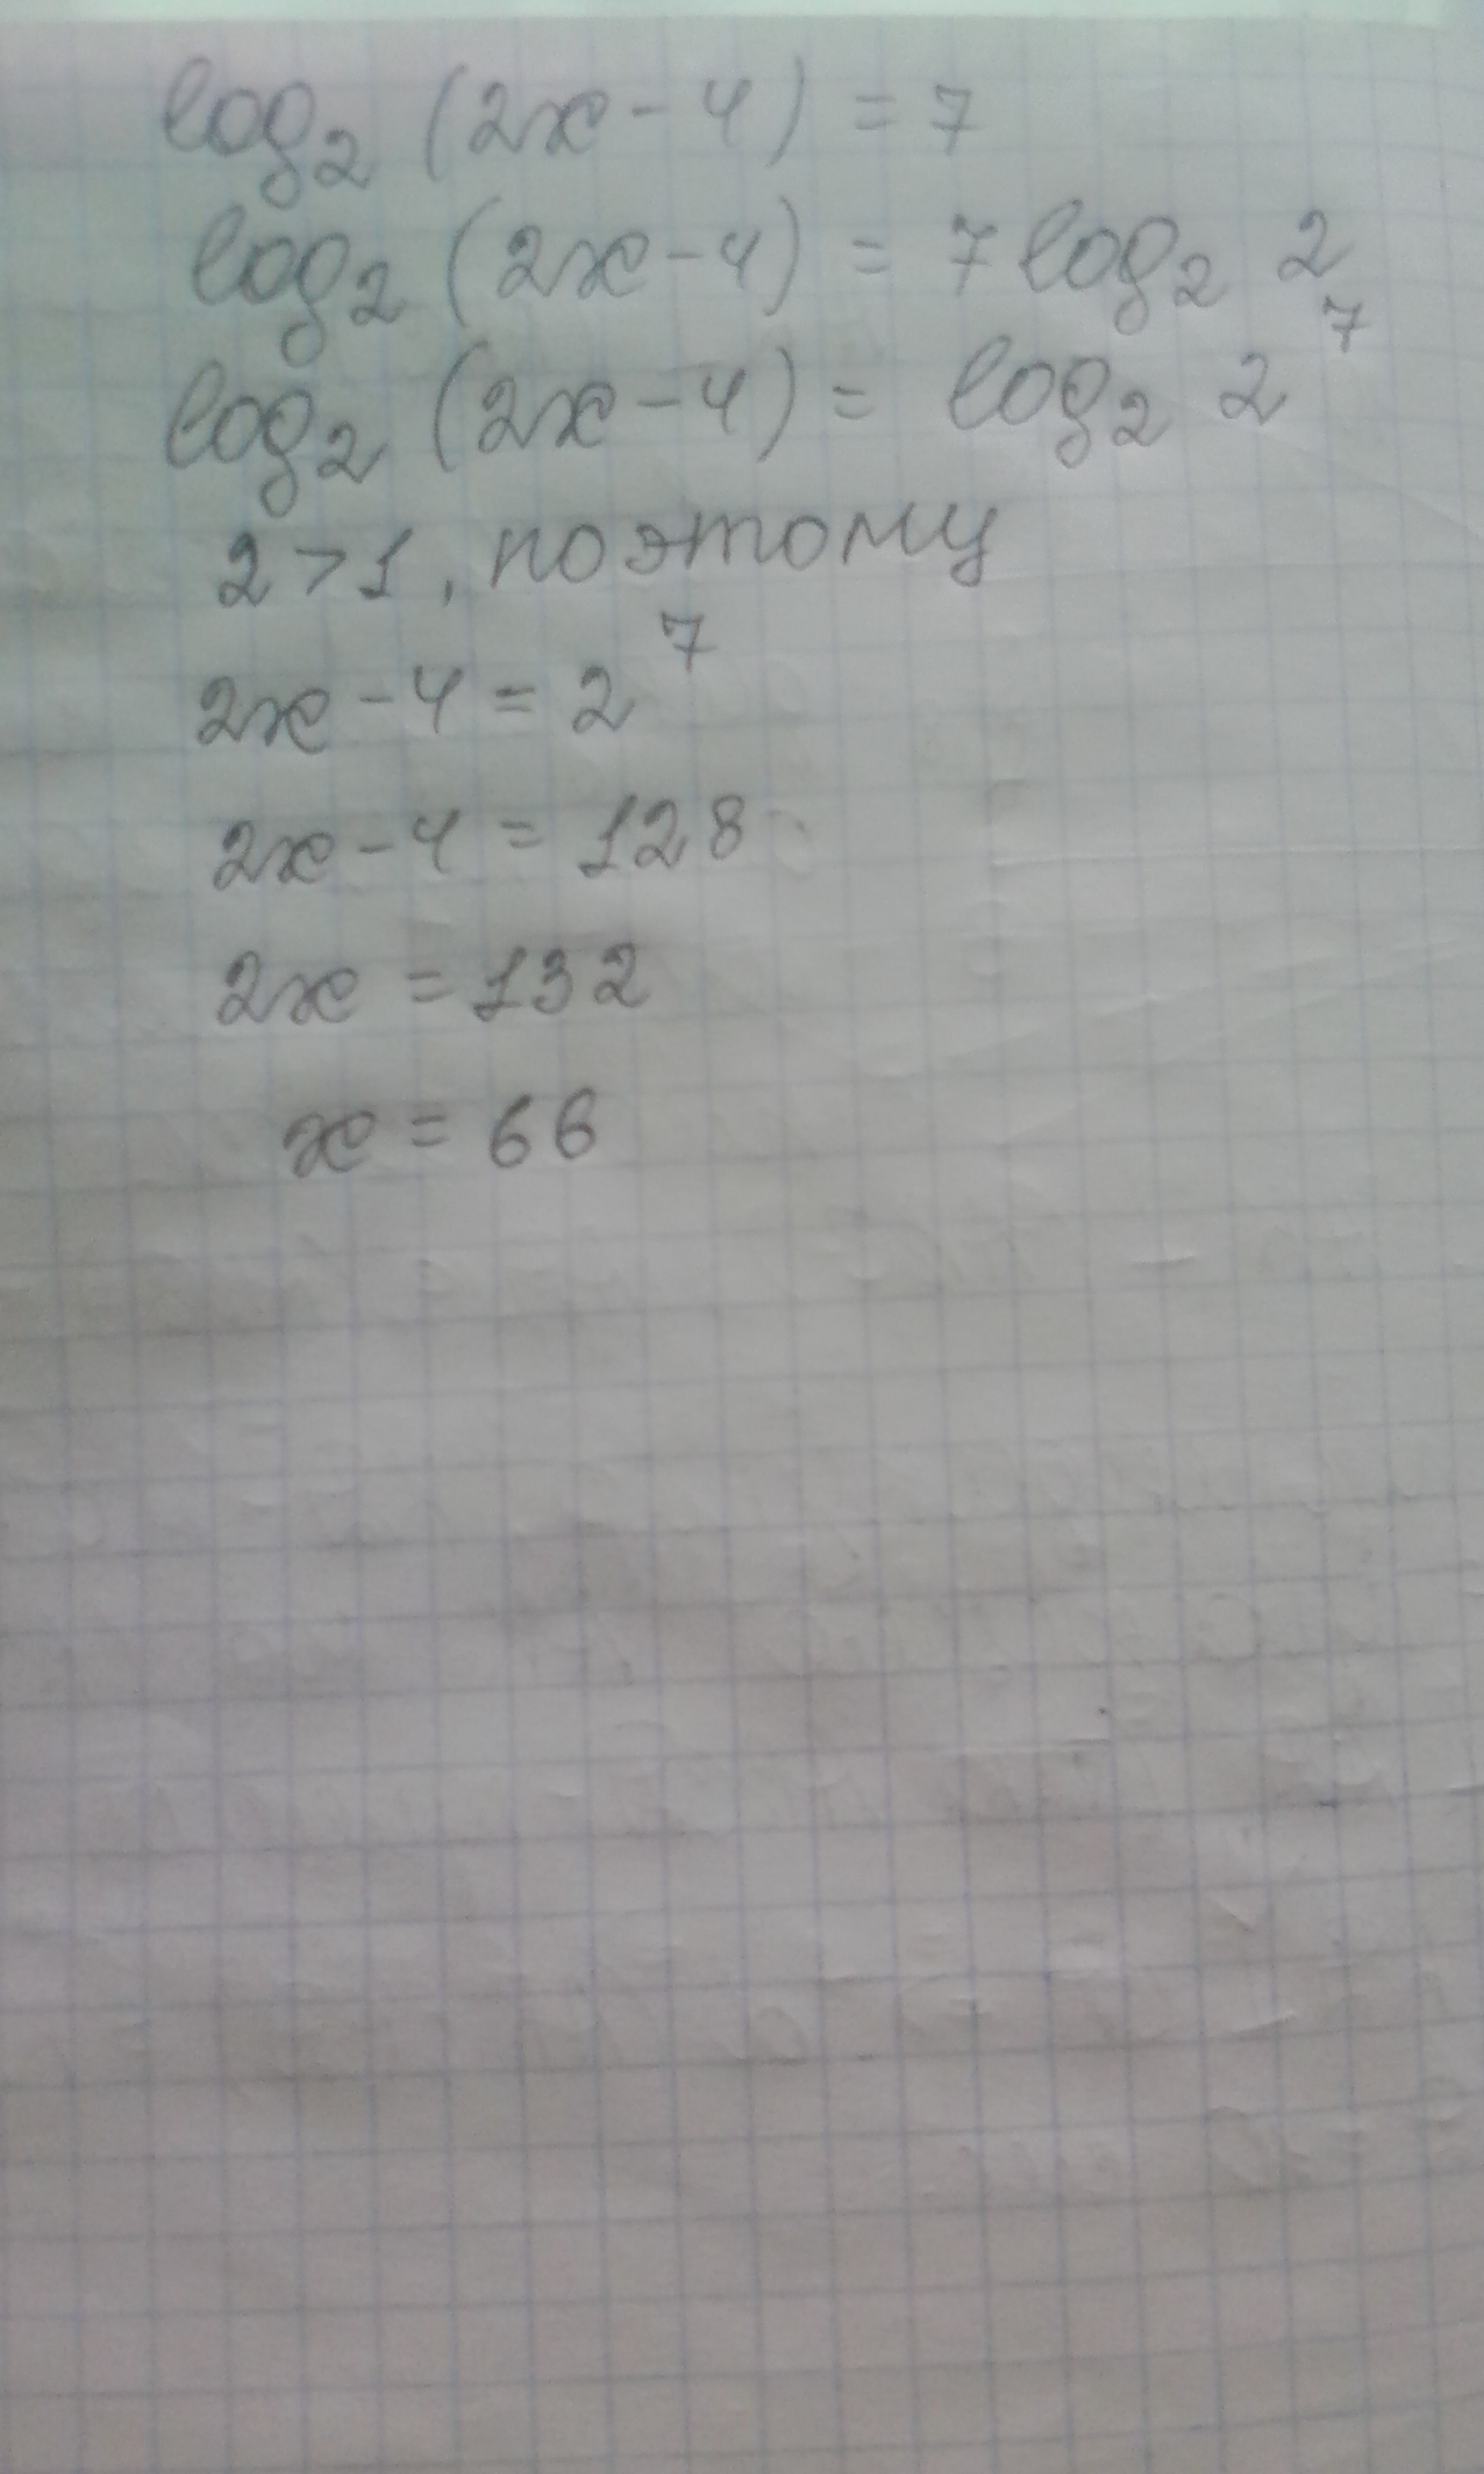 log₂ (2x - 4) = 7
log₂ (2x - 4) = 7 log₂ 2
log₂ (2x - 4) = log₂ 2⁷
2 > 1, поэтому
2x - 4 = 2⁷
2x - 4 = 128
2x = 132
x = 66